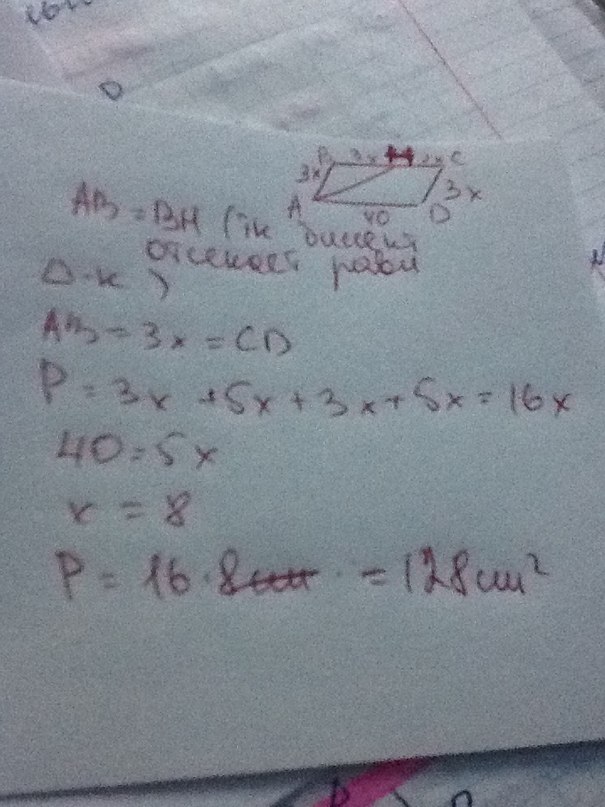 B 3x H 2x C
3x
A
3x
40 D
AB = BH (тк биссект
отсекает равн
Δ-к)
AB = 3x = CD
P = 3x + 5x + 3x + 5x = 16x
40 = 5x
x = 8
P = 16 · 8 = 128 см²